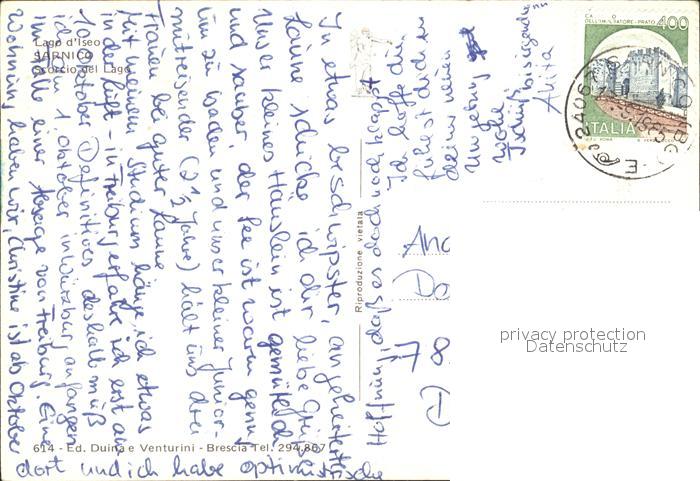 Lago d'Iseo
SARNICO
Scorcio del Lago
In etwas beschwipster, angeheiterter
Laune schicke ich dir liebe Grüße
Unser kleines Häuslein ist gemütlich
und sauber, der See ist warm genug
um zu baden und unser kleiner Junior-
mitreisender (2 1/2 Jahre) hält uns drei
Frauen bei guter Laune
Mit meinem Studium hänge ich etwas
in der Luft - in Freiburg erfahre ich erst am
10. Oktober Definitives, deshalb muß
ich am 1. Oktober in Würzburg anfangen
im Falle einer Absage von Freiburg. Eine
Wohnung haben wir, Christine ist ab Oktober
dort und ich habe optimistische
Hoffnung, daß es doch noch klappt
Ich hoffe du
fühlst dich in
deiner neuen
Umgebung
wohl
Tschüß,
bis irgendwann
Anita
614 - Ed. Duina e Venturini - Brescia Tel. 294.867
Riproduzione vietata
CASTELLO
DELL'IMPERATORE - PRATO
400
ITALIA
24067
(BG)
And
Do
77
D 80
privacy protection
Datenschutz